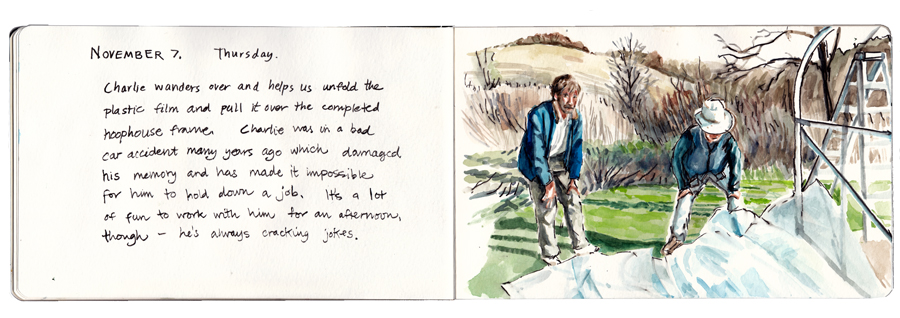 NOVEMBER 7. Thursday.
Charlie wanders over and helps us unfold the
plastic film and pull it over the completed
hoophouse frame. Charlie was in a bad
car accident many years ago which damaged
his memory and has made it impossible
for him to hold down a job. It's a lot
of fun to work with him for an afternoon,
though — he's always cracking jokes.